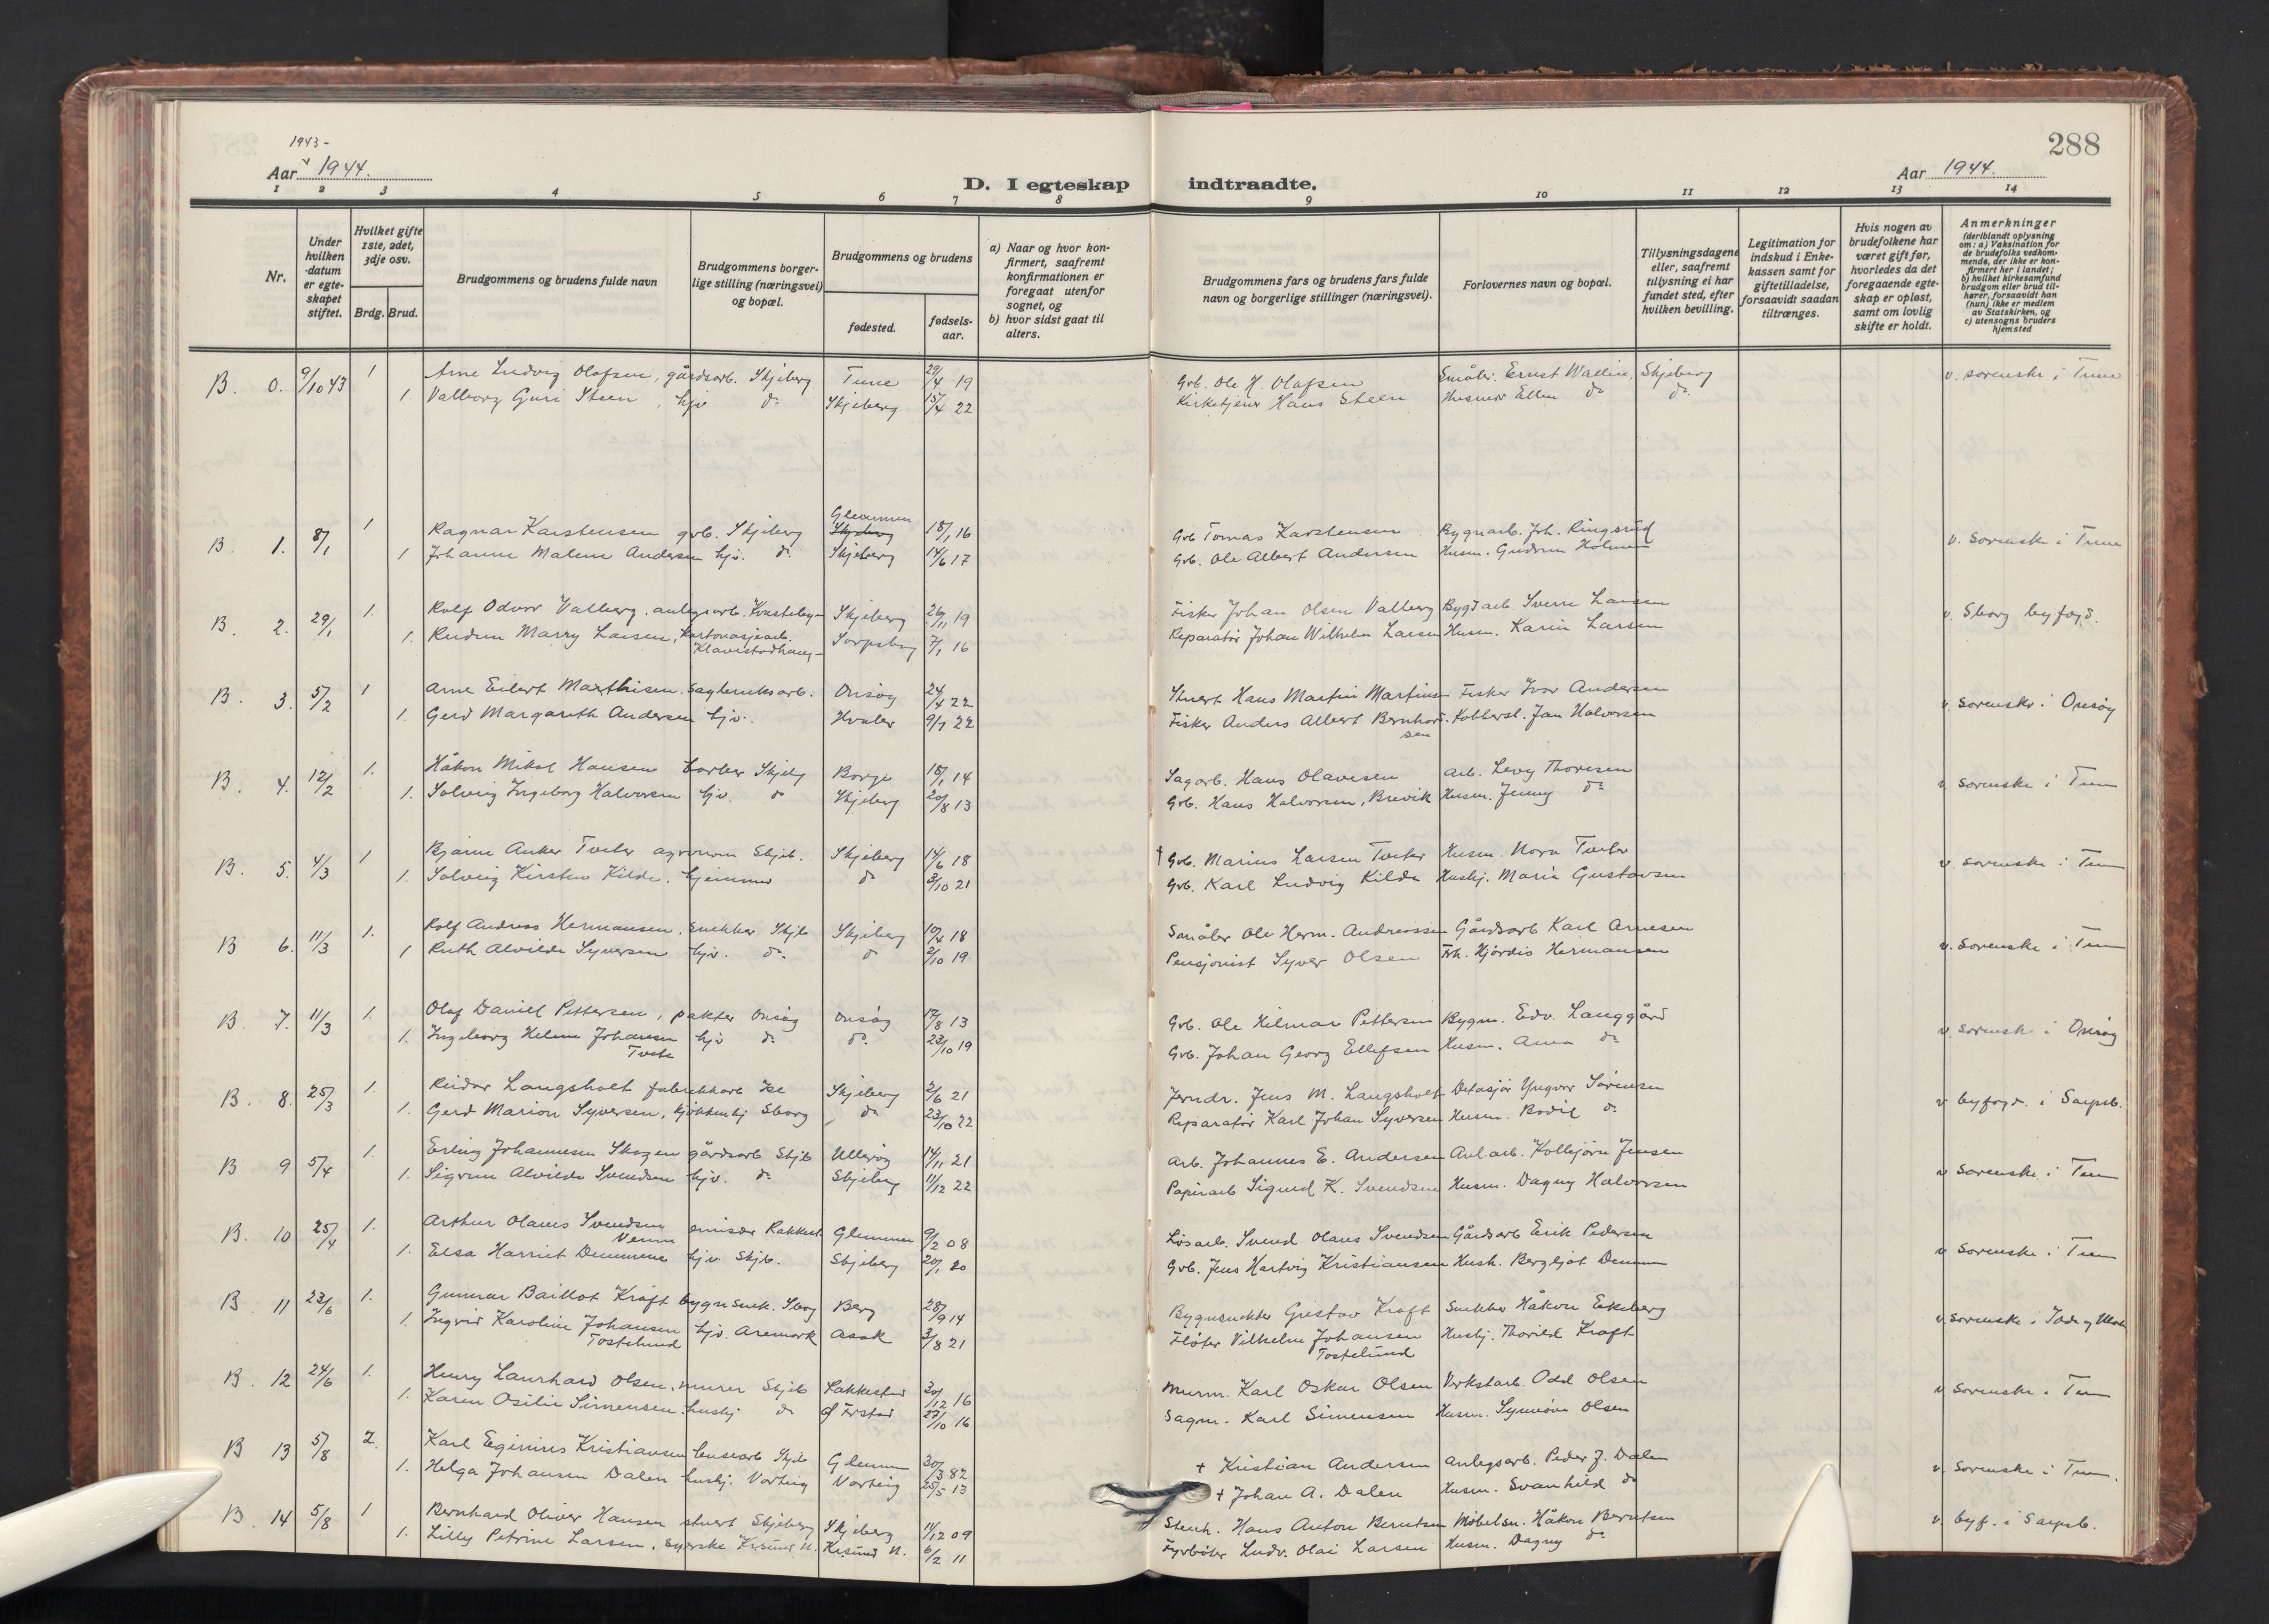 1943-
Aar 1944.
D. I egteskap indtraadte.
288
Aar 1944.
1 2 3 4 5 6 7 8 9 10 11 12 13 14
Nr.
Under hvilken datum er egteskapet stiftet.
Hvilket gifte 1ste, 2det, 3dje osv.
Brdg. Brud.
Brudgommens og brudens fulde navn
Brudgommens borgerlige stilling (næringsvei) og bopæl.
Brudgommens og brudens
fødested.
fødselsaar.
a) Naar og hvor konfirmert, saafremt konfirmationen er foregaat utenfor sognet, og
b) hvor sidst gaat til alters.
Brudgommens fars og brudens fars fulde navn og borgerlige stillinger (næringsvei).
Forlovernes navn og bopæl.
Tillysningsdagene eller, saafremt tillysning ei har fundet sted, efter hvilken bevilling.
Legitimation for indskud i Enkekassen samt for giftetilladelse, forsaavidt saadan tiltrænges.
Hvis nogen av brudefolkene har været gift før, hvorledes da det foregaaende egteskap er opløst, samt om lovlig skifte er holdt.
Anmerkninger (deriblandt oplysning om: a) Vaksination for de brudefolks vedkommende, der ikke er konfirmert her i landet; b) hvilket kirkesamfund brudgom eller brud tilhører, forsaavidt han (hun) ikke er medlem av Statskirken, og c) utensogns bruders hjemsted
B. 0. 9/10 43 1 Arne Ludvig Olafsen, gårdsarb. Skjeberg Tune 29/4 19 Gvb. Ole H. Olafsen Småbr. Ernst Wallin, Skjeberg v. sorenskr i Tune
1. Valborg Guri Steen, hjv do Skjeberg 15/4 22 Kirketjener Hans Steen Husmor Ellen do do
B. 1. 8/1 1 Ragnar Karstensen gvb. Skjeberg Glemmen 18/1 16 Gvb Tomas Karstensen Bygnarb. Joh. Ringsrud v. sorenskr i Tune
1 Johanne Malene Andersen hjv. do Skjeberg 14/6 17 Gvb. Ole Albert Andersen Husm. Gudrun Holmen
B. 2. 29/1 1. Rolf Odvar Valberg, anlegsarb. Skjeberg 26/11 19 Fisker Johan Olsen Valberg Bygdarb. Sverre Larsen v. Sborg byfogd.
1. Reidun Marry Larsen, kartonasjearb. Sarpsborg 7/1 16 Reparatør Johan Wilhelm Larsen Husm. Karin Larsen
B. 3. 5/2 1 Arne Eilert Marthisen. Sagbruksarb. Onsøy 24/4 22 Stuert Hans Martin Martinsen Fisker Ivar Andersen v. sorenskr. i Onsøy
1. Gerd Margareth Andersen hjv. Hvaler 9/7 22 Fisker Anders Albert Bernhardsen Kobbersl. Jan Halvorsen
B. 4. 12/2 1. Håkon Mikal Hansen barber Skjebg Borge 18/1 14 Sagarb. Hans Olavesen Arb. Levy Thoresen v. sorenskr i Tun
1. Solveig Ingeborg Halvorsen hjv. do Skjeberg 20/8 13 Gvb. Hans Halvorsen, Brevik Husm. Jenny do
B. 5. 4/3 1 Bjarne Anker Tveter agronom Skjeb. Skjeberg 14/6 18 † Gvb. Marius Larsen Tveter Husm. Nora Tveter v. sorenskr i Tun
1. Solveig Kirsten Kilde. hjemmev do 3/10 21 Gvb. Karl Ludvig Kilde Hushj. Maria Gustavsen
B 6. 11/3 1. Rolf Andreas Hermansen. snekker Skjeb Skjeberg 10/4 18 Småbr Ole Herm. Andreassen Gårdsarb Karl Arnesen v. sorenskr i Tun
1 Ruth Alvilde Syversen hjv. do do 2/10 19 Pensjonist Syver Olsen Frk. Hjørdis Hermansen
B 7. 11/3 1. Olaf Daniel Pettersen, pakter Onsøy Onsøy 17/8 13 Gvb. Ole Hilmar Pettersen Bygm. Edv. Langgård v. sorenskr i Onsøy
1. Ingeborg Helene Johansen hjv do do 23/10 19 Gvb. Johan Georg Ellefsen Husm. Anna do
B. 8. 25/3 1. Reidar Langsholt fabrikkarb Ise Skjeberg 2/6 21 Jerndr. Jens M. Langsholt Yngvar Sørensen v byfogd. i Sarpsb.
1. Gerd Marion Syversen, kjøkkenhj Sborg do 23/10 22 Reparatør Karl Johan Syversen Husm. Bodil do
B 9 5/4 1 Erling Johannesen Skogen gårdsarb Skjeb Ullerøy 14/11 21 Arb. Johannes E. Andersen Anl.arb. Kolbjørn Jensen v sorenskr. i Tun
1. Sigrun Alvilde Svendsen hjv. do Skjeberg 11/12 22 Papirarb Sigurd K. Svendsen Husm. Dagny Halvorsen
B. 10 25/4 1. Arthur Olaus Svendsen emisær Rakkest. Glemmen 9/2 08 Løsarb. Svend Olaus Svendsen Gårdsarb Erik Pedersen v sorenskr. i Tun
1. Elsa Harriet Dammene hjv. Skjb. Skjeberg 20/1 20 Gvb. Jens Hartvig Kristiansen Hush. Bergljot
B. 11 23/6 1. Gunnar Baillot Kraft bygnsnek. Sborg Berg 28/9 14 Bygnsnekker Gustav Kraft Snekker Håkon Ekeberg v sorenskr i
1. Ingrid Karoline Johansen Tostelund hjv. Aremark Asak 3/8 21 Fløter Vilhelm Johansen Tostelund Hushj. Thorild Kraft
B. 12 24/6 1. Henry Laurhard Olsen. murer Skjeb Rakkestad 30/12 16 Murm. Karl Oskar Olsen Verkstarb. Odd Olsen v sorenskr. i Tun
1. Karen Osilie Simensen. hushj do 27/10 16 Sagm. Karl Simensen Husm. Synnøve Olsen
B 13 5/8 2. Karl Eginius Kristiansen Skjeb Glemmen 30/3 82 † Kristian Andersen Anlegsarb. Peder J. Dalen v. sorenskr i Tun.
1. Helga Johansen Dalen hushj. Varteig Varteig 25/5 13 † Johan A. Dalen Husm. Svanhild do
B. 14 5/8 1 Bernhard Oliver Hansen stuert Skjeberg Skjeberg 11/12 09 Stenh. Hans Anton Berntsen Møbelsn. Håkon Berntsen v. byf. i Sarpsb.
1. Lilly Petrine Larsen. syerske Krsund N. Krsund N. 6/2 11 Fyrbøter Ludv. Olai Larsen Husm. Dagny do